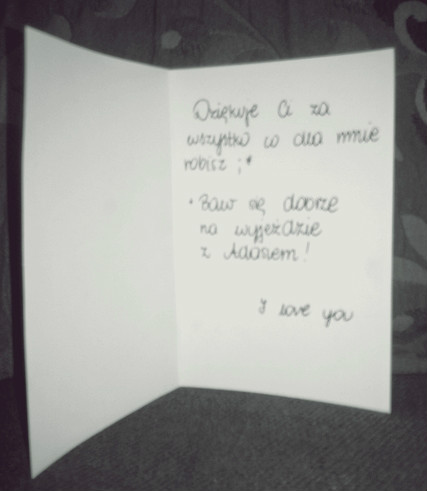 Dziękuje Ci za
wszystko co dla mnie
robisz ;*
• Baw się dobrze
na wyjeździe
z Adasiem!
I love you